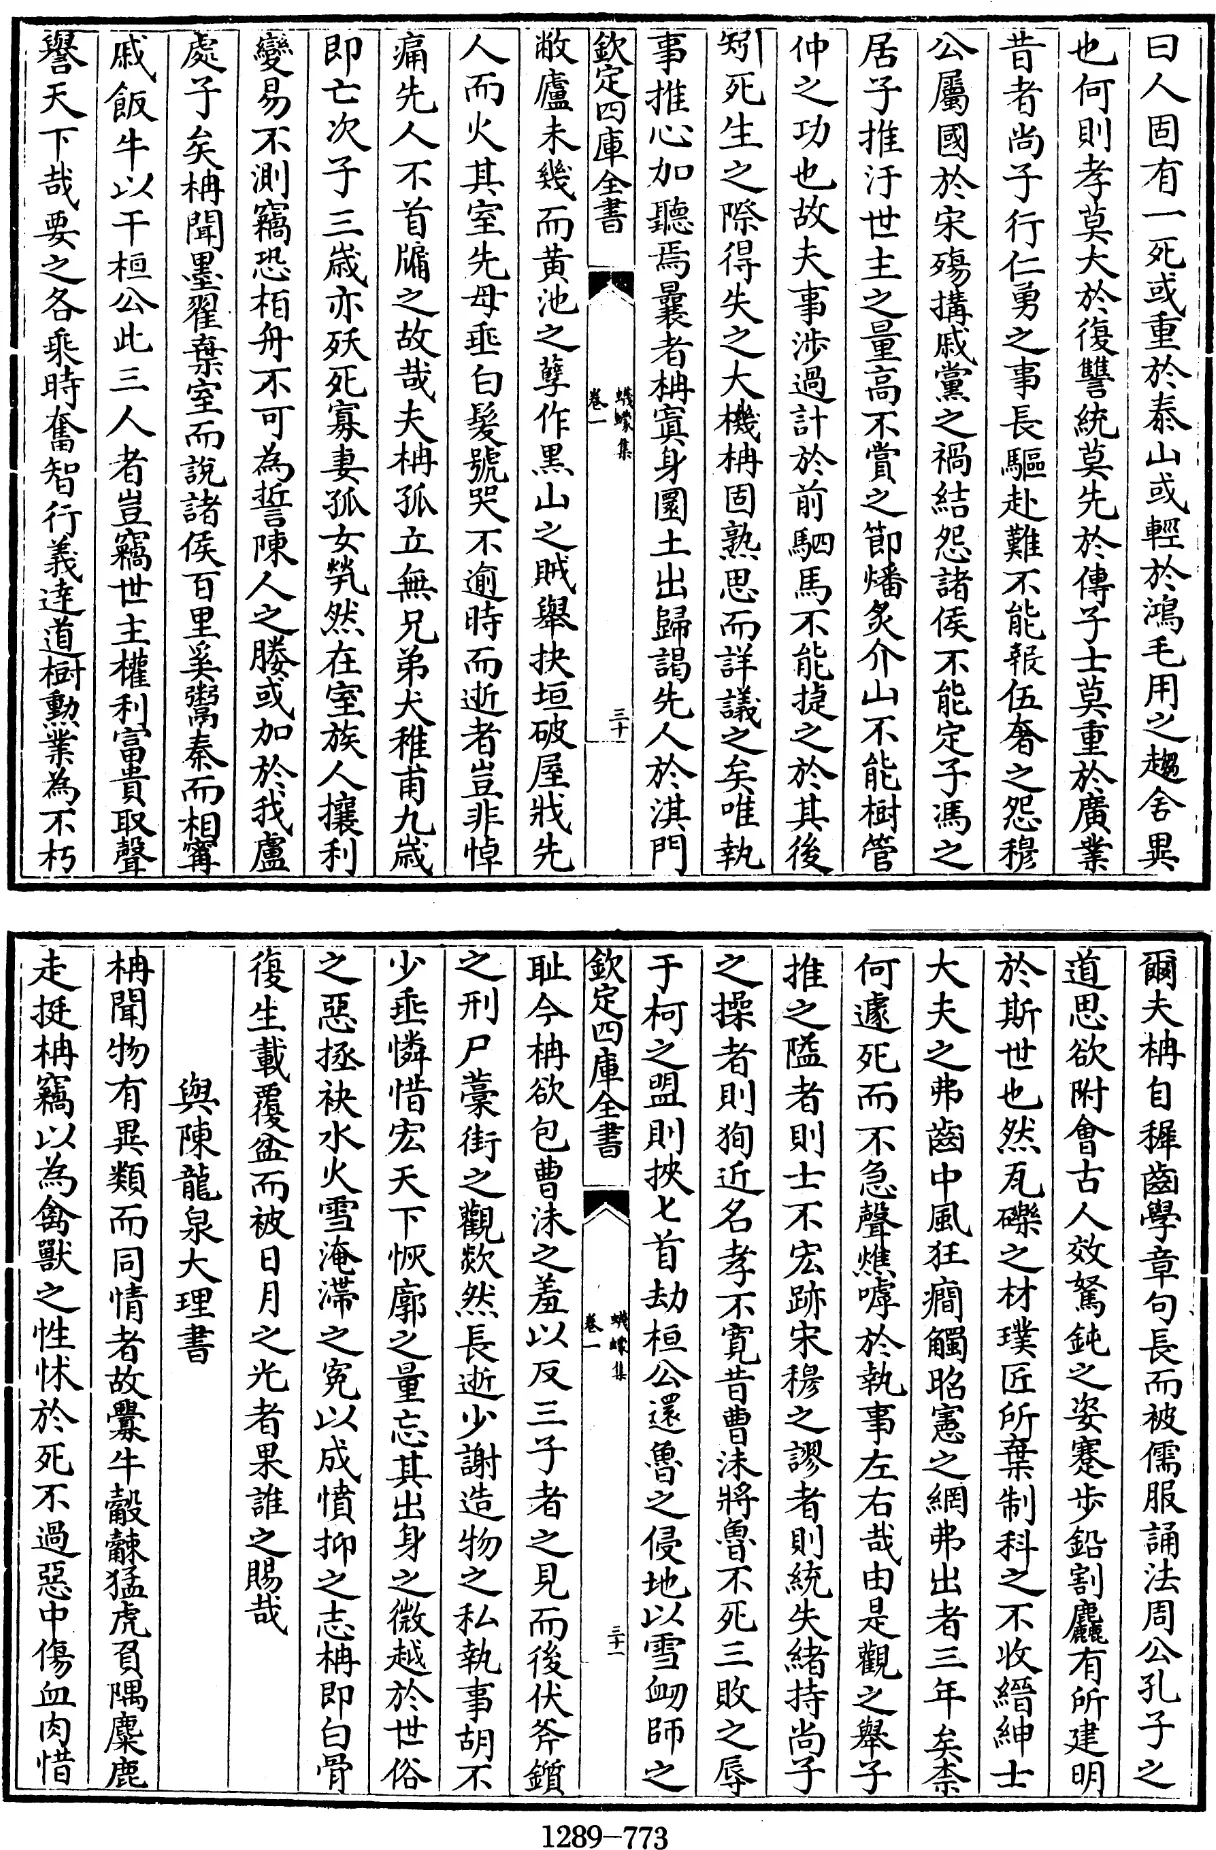 曰人固有一死或重於泰山或輕於鴻毛用之趨舍異
也何則孝莫大於復讐統莫先於傳子士莫重於廣業
昔者尚子行仁勇之事長驅赴難不能報伍奢之怨穆
公屬國於宋殤搆戚黨之禍結怨諸侯不能定子馮之
居子推汙世主之量高不賞之節燔炙介山不能樹管
仲之功也故夫事涉過計於前駟馬不能㨗之於其後
矧死生之際得失之大機柟固熟思而詳議之矣唯執
事推心加聽焉曩者柟寘身圜土出歸謁先人於淇門
欽定四庫全書
蠛蠓集
卷一
三十
敝廬未幾而黄池之孽作黒山之賊舉抉垣破屋戕先
人而火其室先母垂白髪號哭不逾時而逝者豈非悼
痛先人不首牖之故哉夫柟孤立無兄弟犬稚甫九嵗
即亡次子三嵗亦殀死寡妻孤女煢然在室族人攘利
變易不測竊恐栢舟不可為誓陳人之媵或加於我盧
處子矣柟聞墨翟棄室而說諸侯百里奚鬻秦而相甯
戚飯牛以干桓公此三人者豈竊世主權利富貴取聲
譽天下哉要之各乘時奮智行義逹道樹勲業為不朽
爾夫柟自穉齒學章句長而被儒服誦法周公孔子之
道思欲附會古人效駑鈍之姿蹇步鉛割麤有所建明
於斯世也然瓦礫之材璞匠所棄制科之不收縉紳士
大夫之弗齒中風狂癎觸昭憲之網弗出者三年矣柰
何遽死而不急聲憔嘑於執事左右哉由是觀之舉子
推之隘者則士不宏跡宋穆之謬者則統失緒持尚子
之操者則狥近名孝不寛昔曹沬將魯不死三敗之辱
于柯之盟則挾匕首劫桓公還魯之侵地以雪衂師之
欽定四庫全書
蠛蠓集
卷一
三十一
耻今柟欲包曹沬之羞以反三子者之見而後伏斧鑕
之刑尸藁街之觀欻然長逝少謝造物之私執事胡不
少垂憐惜宏天下恢廓之量忘其出身之微越於世俗
之惡拯袂水火雪淹滯之寃以成憤抑之志柟即白骨
復生載覆盆而被日月之光者果誰之賜哉
與陳龍泉大理書
柟聞物有異類而同情者故釁牛觳觫猛虎負隅麋鹿
走挺柟竊以為禽獸之性怵於死不過惡中傷血肉惜
1289-773